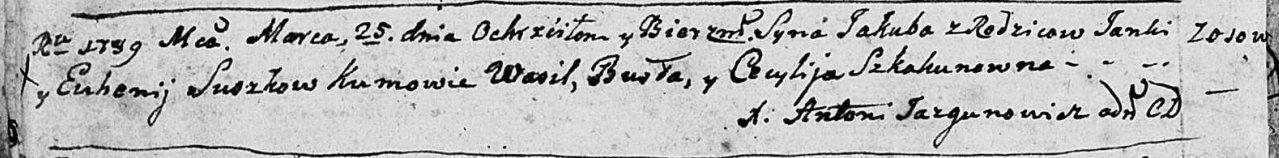 Rtu 1789 Mca. Marca, 25. dnia Ochrzciłem y Bierzm. Syna Jakuba z Rodzicow Janki
y Euhenij Suszkow Kumowie Wasil, Busła, y Cecylija Szkakunowna - - --
X. Antoni Jazgunowicz